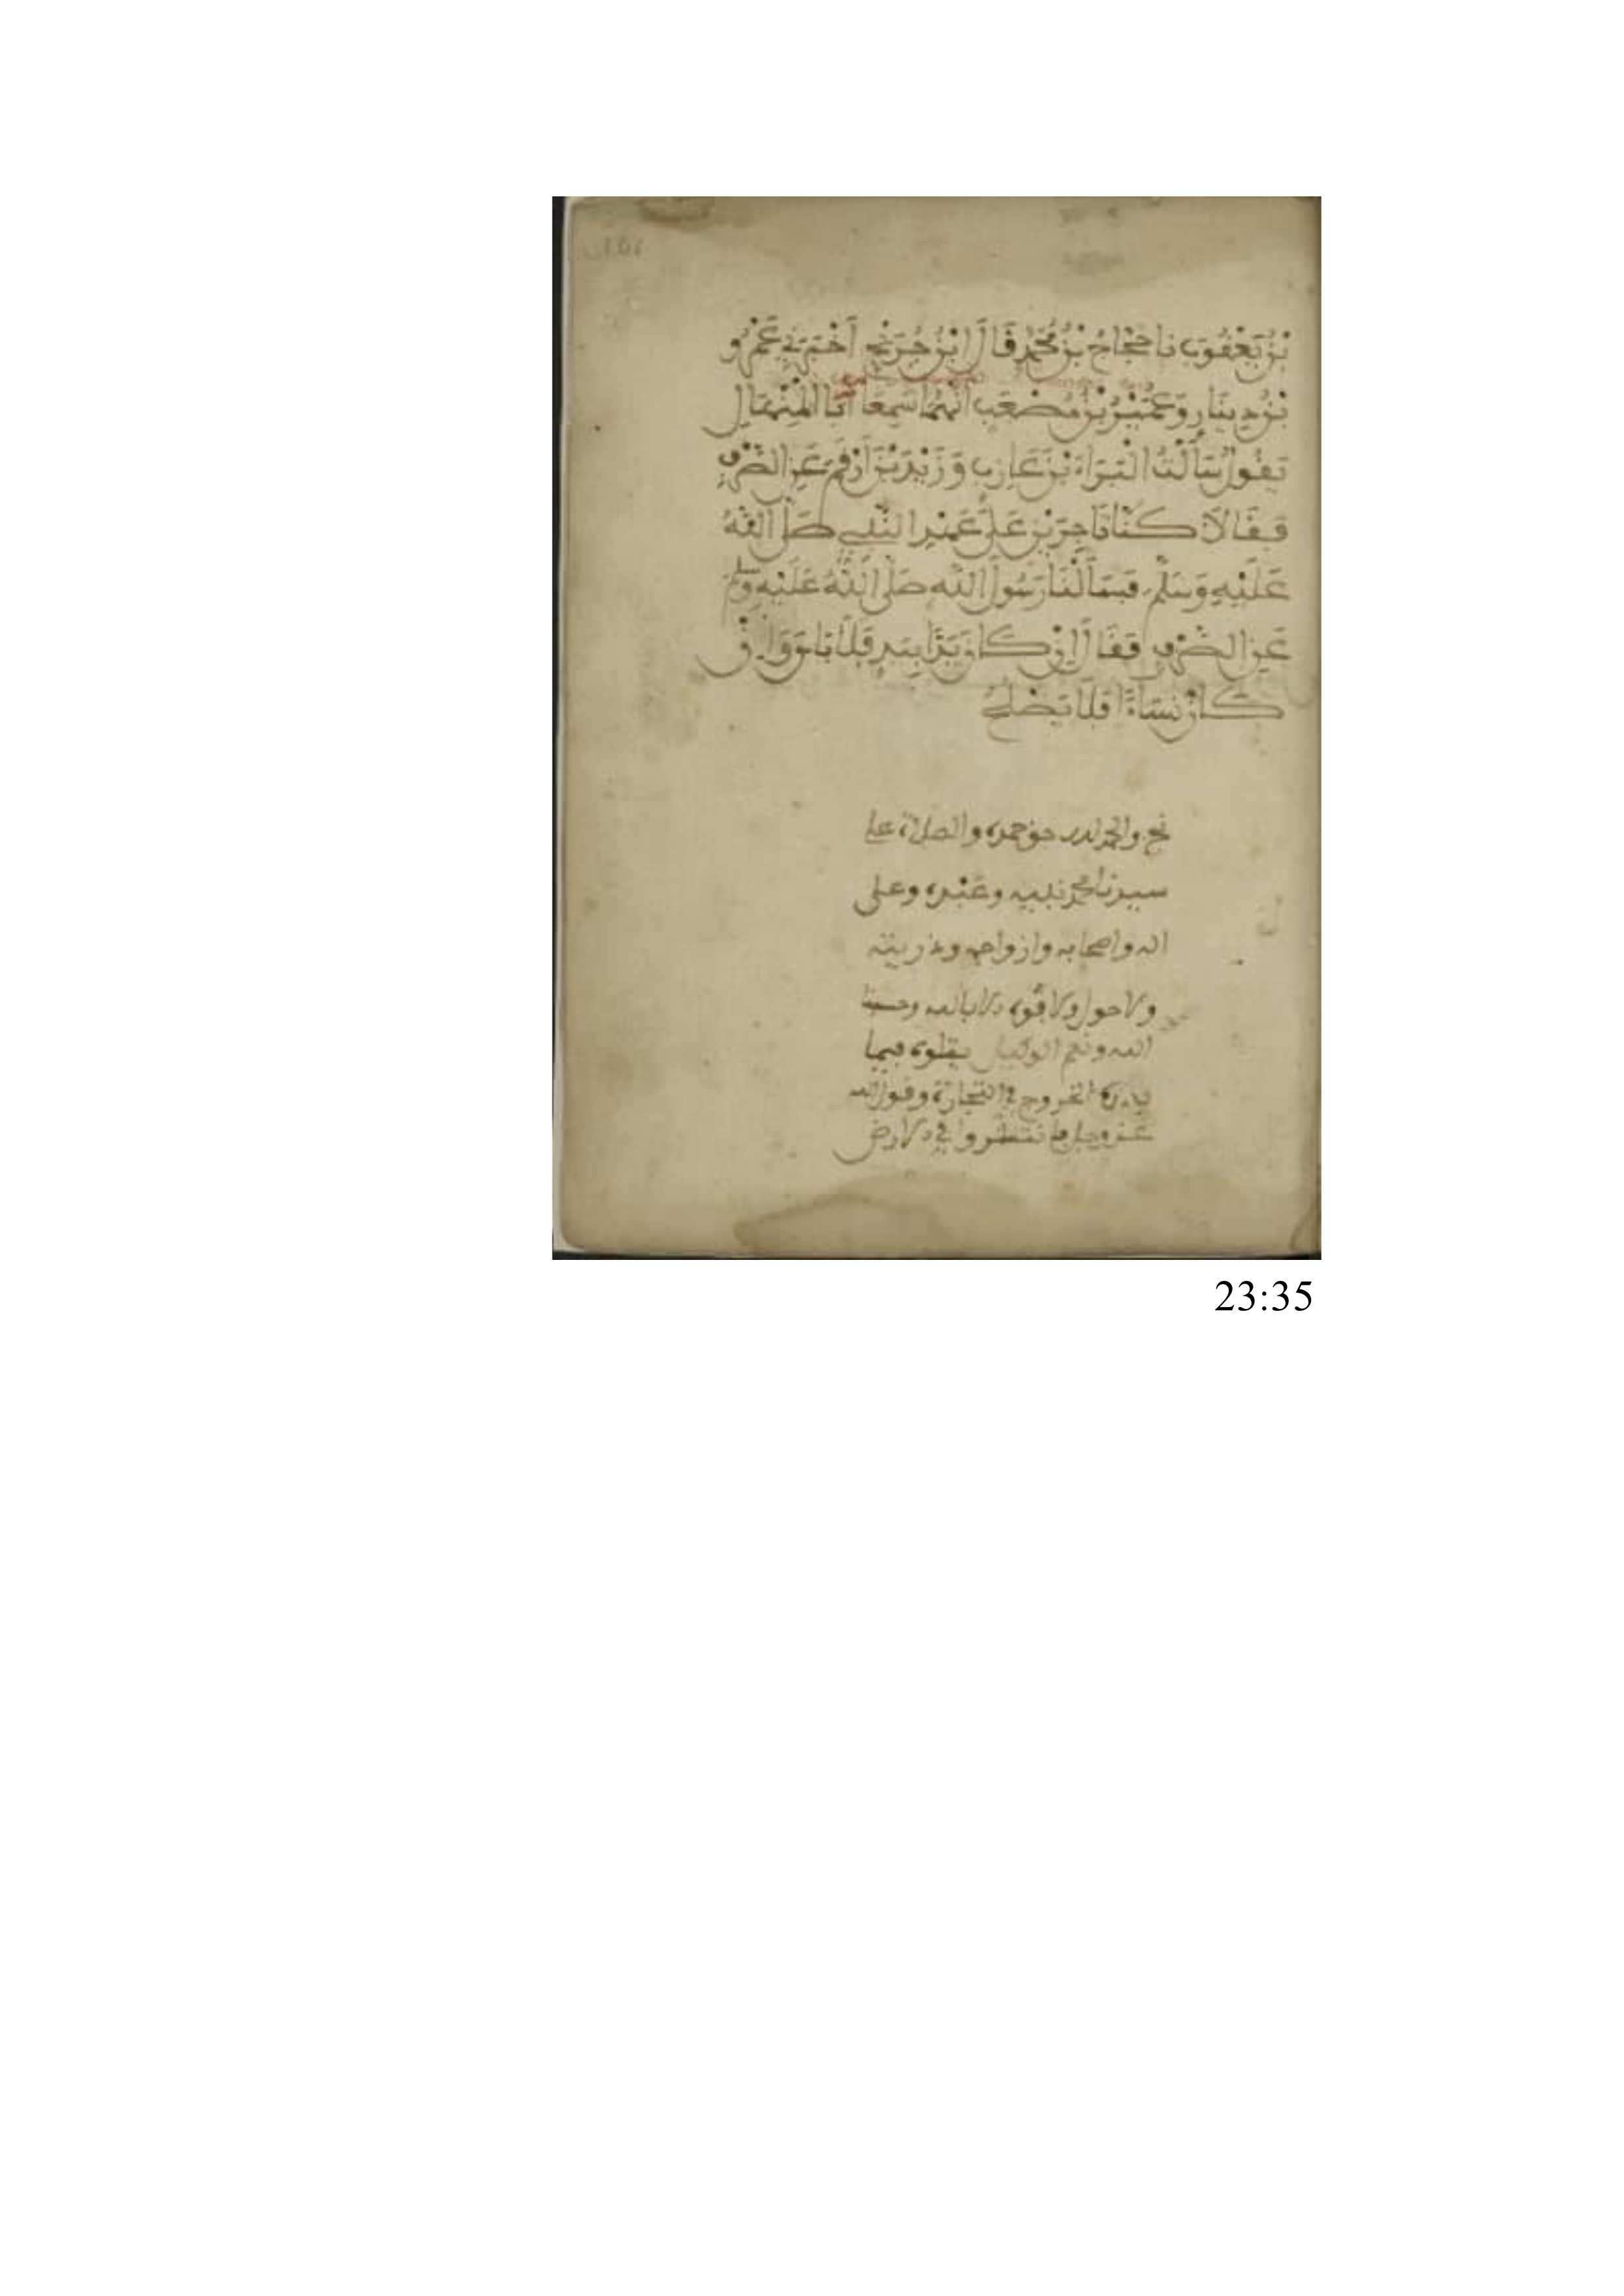 بْنُ يَعْقُوبَ نا حَجَّاجُ بْنُ مُحَمَّدٍ قَالَ ابْنُ جُرَيْجٍ أَخْبَرَنِي عَمْرُو
بْنُ دِينَارٍ وَعَامِرُ بْنُ مُصْعَبٍ أَنَّهُمَا سَمِعَا أَبَا الْمِنْهَالِ
يَقُولُ سَأَلْتُ الْبَرَاءَ بْنَ عَازِبٍ وَزَيْدَ بْنَ أَرْقَمَ عَنِ الصَّرْفِ
فَقَالَا كُنَّا تَاجِرَيْنِ عَلَى عَهْدِ النَّبِي صَلَّى اللَّهُ
عَلَيْهِ وَسَلَّمَ فَسَأَلْنَا رَسُولَ اللَّهِ صَلَّى اللَّهُ عَلَيْهِ وَسَلَّمَ
عَنِ الصَّرْفِ فَقَالَ إِنْ كَانَ يَدًا بِيَدٍ فَلَا بَاسَ وَإِنْ
كَانَ نَسَاءً فَلَا يَصْلُحُ
والحمد لله حق حمده والصلاة على
سيدنا محمد نبيه وعبده وعلى
اله واصحابه وازواجه وذريته
ولا حول ولا قوة الا بالله وحسبنا
الله ونعم الوكيل يتلوه فيما
الخروج في التجارة وقول الله
عز وجل فانتشروا في الارض
23:35